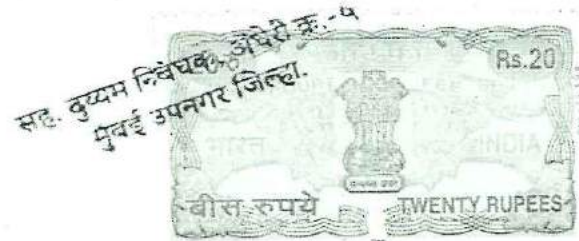 सह. दुय्यम निबंधक, अंधेरी क्र.-५
मुंबई उपनगर जिल्हा.
Rs.20
भारत INDIA
बीस रुपये TWENTY RUPEES